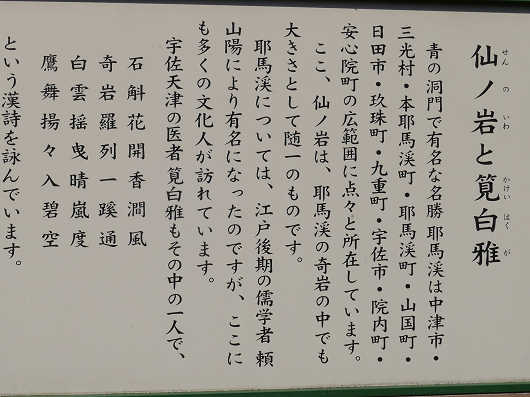 仙ノ岩と筧白雅
せん の いわ かけい はく が
青の洞門で有名な名勝 耶馬渓は中津市・
三光村・本耶馬渓町・耶馬渓町・山国町・
日田市・玖珠町・九重町・宇佐市・院内町・
安心院町の広範囲に点々と所在しています。
ここ、仙ノ岩は、耶馬渓の奇岩の中でも
大きさとして随一のものです。
耶馬渓については、江戸後期の儒学者 頼
山陽により有名になったのですが、ここに
も多くの文化人が訪れています。
宇佐天津の医者 筧白雅もその中の一人で、
石斛花開香澗風
奇岩羅列一蹊通
白雲揺曳晴嵐度
鷹舞揚々入碧空
という漢詩を詠んでいます。